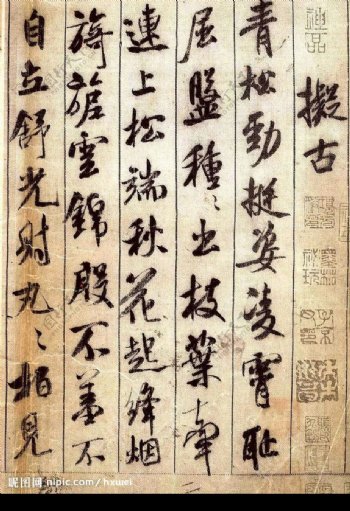 擬古
青松勁挺姿凌霄恥
屈盤種〻出枝葉牽
連上松端秋花起絳烟
旖旎雲錦殷不羞不
自立舒光射丸〻柏見
昵图网 nipic.com/hxuwei